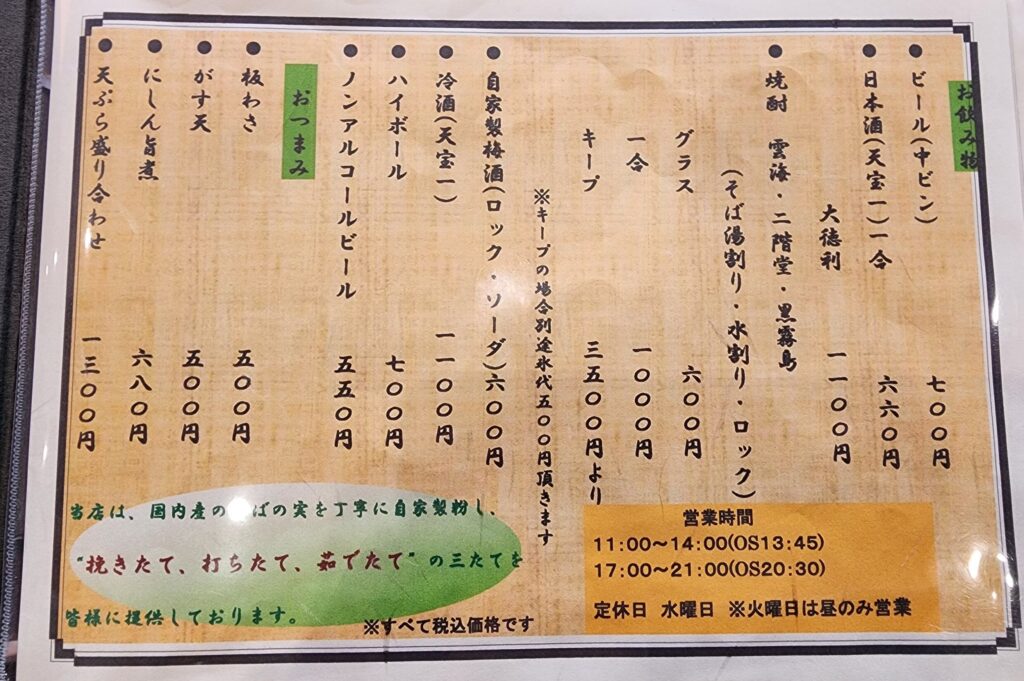 お飲み物
●ビール(中ビン) 七〇〇円
●日本酒(天宝一)一合 六六〇円
大徳利 一一〇〇円
●焼酎 雲海・二階堂・黒霧島
(そば湯割り・水割り・ロック)
グラス 六〇〇円
一合 一〇〇〇円
キープ 三五〇〇円より
※キープの場合別途氷代五〇〇円頂きます
●自家製梅酒(ロック・ソーダ)六〇〇円
●冷酒(天宝一) 一一〇〇円
●ハイボール 七〇〇円
●ノンアルコールビール 五五〇円
おつまみ
●板わさ 五〇〇円
●がす天 五〇〇円
●にしん旨煮 六八〇円
●天ぷら盛り合わせ 一三〇〇円
当店は、国内産のそばの実を丁寧に自家製粉し、
“挽きたて、打ちたて、茹でたて”の三たてを
皆様に提供しております。
※すべて税込価格です
営業時間
11:00～14:00(OS13:45)
17:00～21:00(OS20:30)
定休日 水曜日 ※火曜日は昼のみ営業